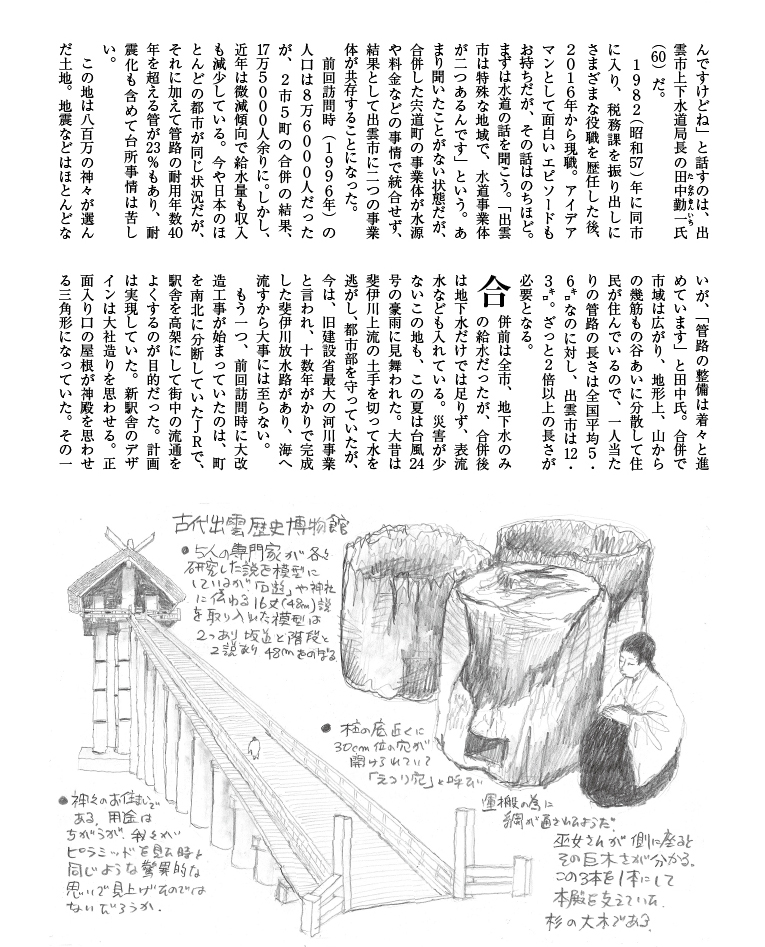 んですけどね」と話すのは、出
雲市上下水道局長の田中勤一氏
（60）だ。
　1982（昭和57）年に同市
に入り、税務課を振り出しに
さまざまな役職を歴任した後、
2016年から現職。アイデア
マンとして面白いエピソードも
お持ちだが、その話はのちほど。
まずは水道の話を聞こう。「出雲
市は特殊な地域で、水道事業体
が二つあるんです」という。あ
まり聞いたことがない状態だが、
合併した宍道町の事業体が水源
や料金などの事情で統合せず、
結果として出雲市に二つの事業
体が共存することになった。
　前回訪問時（1996年）の
人口は8万6000人だった
が、2市5町の合併の結果、
17万5000人余りに。しかし、
近年は微減傾向で給水量も収入
も減少している。今や日本のほ
とんどの都市が同じ状況だが、
それに加えて管路の耐用年数40
年を超える管が23％もあり、耐
震化も含めて台所事情は苦し
い。
　この地は八百万の神々が選ん
だ土地。地震などはほとんどな
いが、「管路の整備は着々と進
めています」と田中氏。合併で
市域は広がり、地形上、山から
の幾筋もの谷あいに分散して住
民が住んでいるので、一人当た
りの管路の長さは全国平均5・
6㌔なのに対し、出雲市は12・
3㌔。ざっと2倍以上の長さが
必要となる。
合併前は全市、地下水のみ
の給水だったが、合併後
は地下水だけでは足りず、表流
水なども入れている。災害が少
ないこの地も、この夏は台風24
号の豪雨に見舞われた。大昔は
斐伊川上流の土手を切って水を
逃がし、都市部を守っていたが、
今は、旧建設省最大の河川事業
と言われ、十数年がかりで完成
した斐伊川放水路があり、海へ
流すから大事には至らない。
　もう一つ、前回訪問時に大改
造工事が始まっていたのは、町
を南北に分断していたJRで、
駅舎を高架にして街中の流通を
よくするのが目的だった。計画
は実現していた。新駅舎のデザ
インは大社造りを思わせる。正
面入り口の屋根が神殿を思わせ
る三角形になっていた。その一
古代出雲歴史博物館
●5人の専門家が各々
研究した説を模型に
しているが、「口遊」や神社
に伝わる16丈(48m)説
を取り入れた模型は
2つあり坂道と階段と
2説あり 48mをのぼる
●柱の底近くに
30cm位の穴が
開けられていて
「えつり穴」と呼び
運搬の為に
綱が通されたようだ。
巫女さんが側に座ると
その巨木さが分かる。
この3本を1本にして
本殿を支えていた
杉の大木である。
●神々のお住まいで
ある。用途は
ちがうが、我々が
ピラミッドを見た時と
同じような驚異的な
思いで見上げたのでは
ないだろうか。